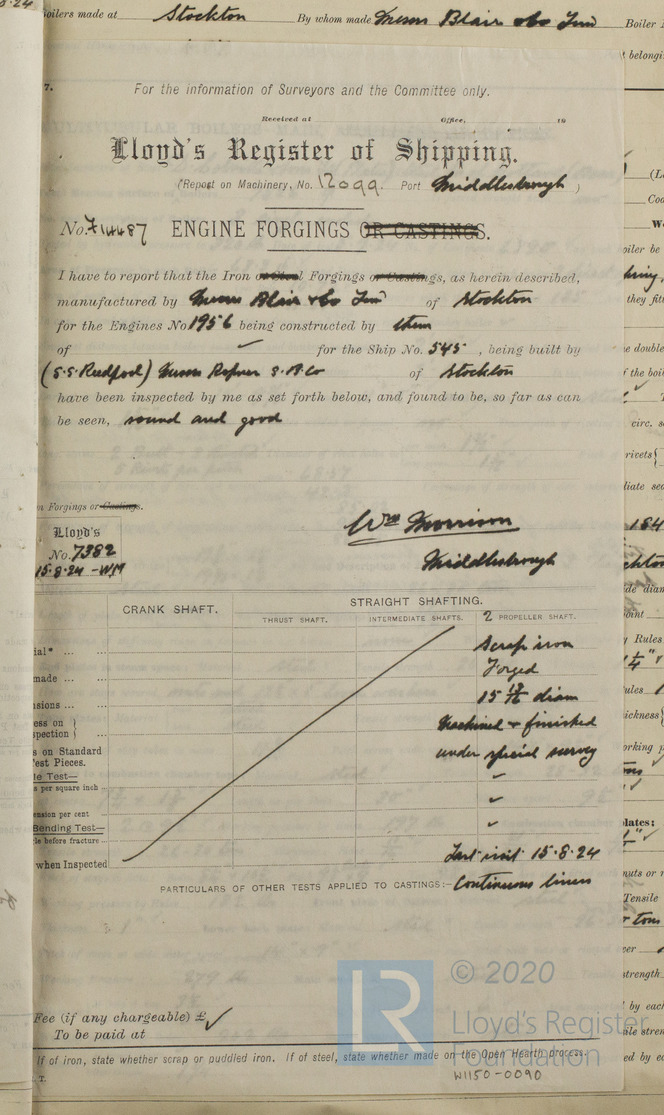 8.24
Boilers made at Stockton By whom made Messrs Blair & Co Limd Boiler
7.
For the information of Surveyors and the Committee only.
Received at Office, 19
Lloyd's Register of Shipping.
(Report on Machinery, No. 12099. Port Middlesbrough )
No. F14487 ENGINE FORGINGS OR CASTINGS.
I have to report that the Iron or Steel Forgings or Castings, as herein described,
manufactured by Messrs Blair & Co Limd of Stockton
for the Engines No 1956 being constructed by them
of ✓ for the Ship No. 545 , being built by
(S.S. Reedpool) Messrs Ropner S.B.Co of Stockton
have been inspected by me as set forth below, and found to be, so far as can
be seen, sound and good
Forgings or Castings.
Lloyd's
No. 7382
15.8.24 -WM
Wm Morrison
Middlesbrough
CRANK SHAFT. STRAIGHT SHAFTING.
THRUST SHAFT. INTERMEDIATE SHAFTS. 2 PROPELLER SHAFT.
ial* ... ... Scrap iron
made ... ... Forged
nsions ... ... 15 13/16 diam
ess on } Machined & finished
spection } ...
s on Standard under special survey
Test Pieces.
le Test—
s per square inch ... ✓
ension per cent ... ✓
Bending Test—
le before fracture ... ✓
when Inspected Last visit 15.8.24
PARTICULARS OF OTHER TESTS APPLIED TO CASTINGS:— Continuous liners
Fee (if any chargeable) £ ✓
To be paid at
If of iron, state whether scrap or puddled iron. If of steel, state whether made on the Open Hearth process.
T.
W1150-0090
LR
© 2020
Lloyd's Register
Foundation